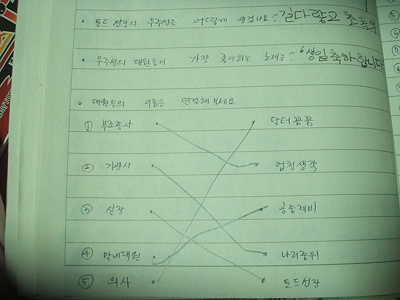 • 토드 선장의 우주선은 어떻게 생겼나요? 길다랗고 초록색
• 우주선의 대원들이 가장 좋아하는 노래는? "생일축하합니다
• 대원들의 이름을 연결해보세요
① 부조종사 닥터공중
② 기관사 럼청생각
③ 선장 공중제비
④ 막내대원 나리중위
⑤ 의사 토드선장